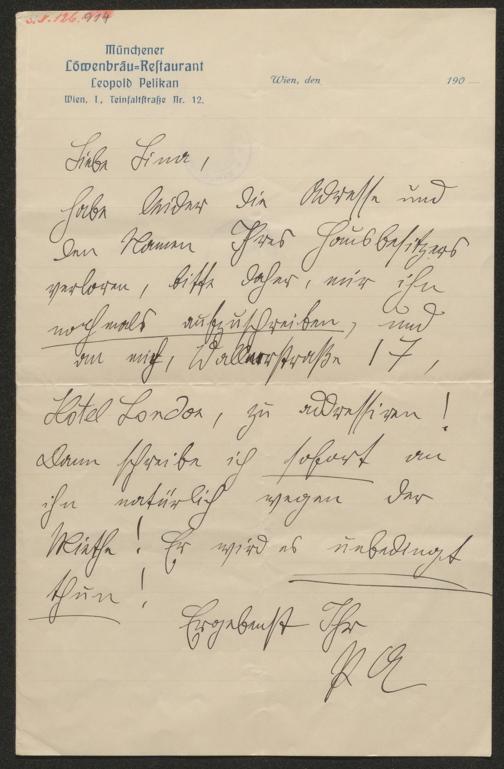 Münchener
Löwenbräu=Restaurant
Leopold Pelikan
Wien, I., Teinfaltstraße Nr. 12.
Wien, den 190
Liebe Lina,
habe leider die Adresse und
den Namen Ihres Hausbesitzers
verloren, bitte daher, mir ihn
nochmals aufzuschreiben, und
an mich, Wallnerstraße 17,
Hôtel London, zu addressiren!
Dann schreibe ich sofort an
ihn natürlich wegen der
Miethe! Er wird es unbedingt
thun!
Ergebenst Ihr
PA